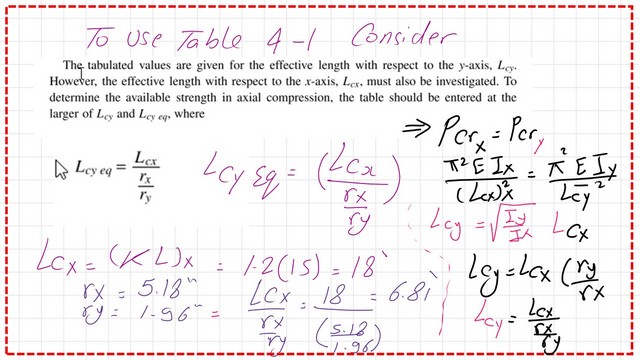 To use Table 4-1 Consider
The tabulated values are given for the effective length with respect to the y-axis, Lcy.
However, the effective length with respect to the x-axis, Lcx, must also be investigated. To
determine the available strength in axial compression, the table should be entered at the
larger of Lcy and Lcy eq, where
Lcy eq = Lcx / (rx / ry)
Lcy Eq = (Lcx / (rx / ry))
⇒ Pcrx = Pcry
π² E Ix / (Lcx)²x = π² E Iy / Lcy²
Lcy = √(Iy / Ix) Lcx
Lcy = Lcx (ry / rx)
Lcy = Lcx / (rx / ry)
Lcx = (K L)x = 1.2(15) = 18'
rx = 5.18"
ry = 1.96" = Lcx / (rx / ry) = 18 / (5.18 / 1.96) = 6.81'